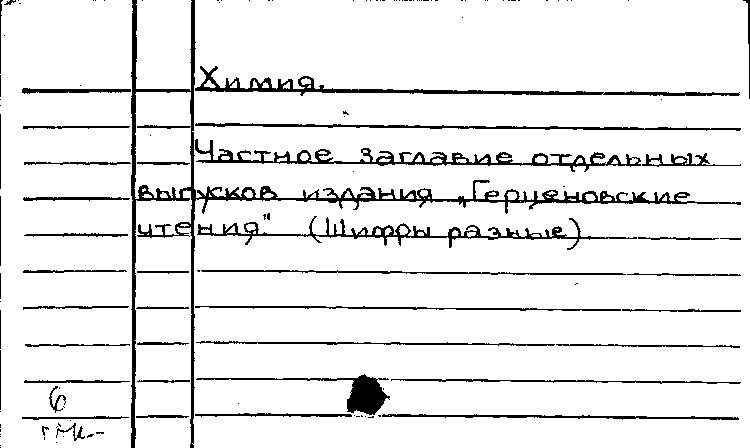 Химия.
Частное заглавие отдельных
выпусков издания „Герценовские
чтения." (Шифры разные).
6